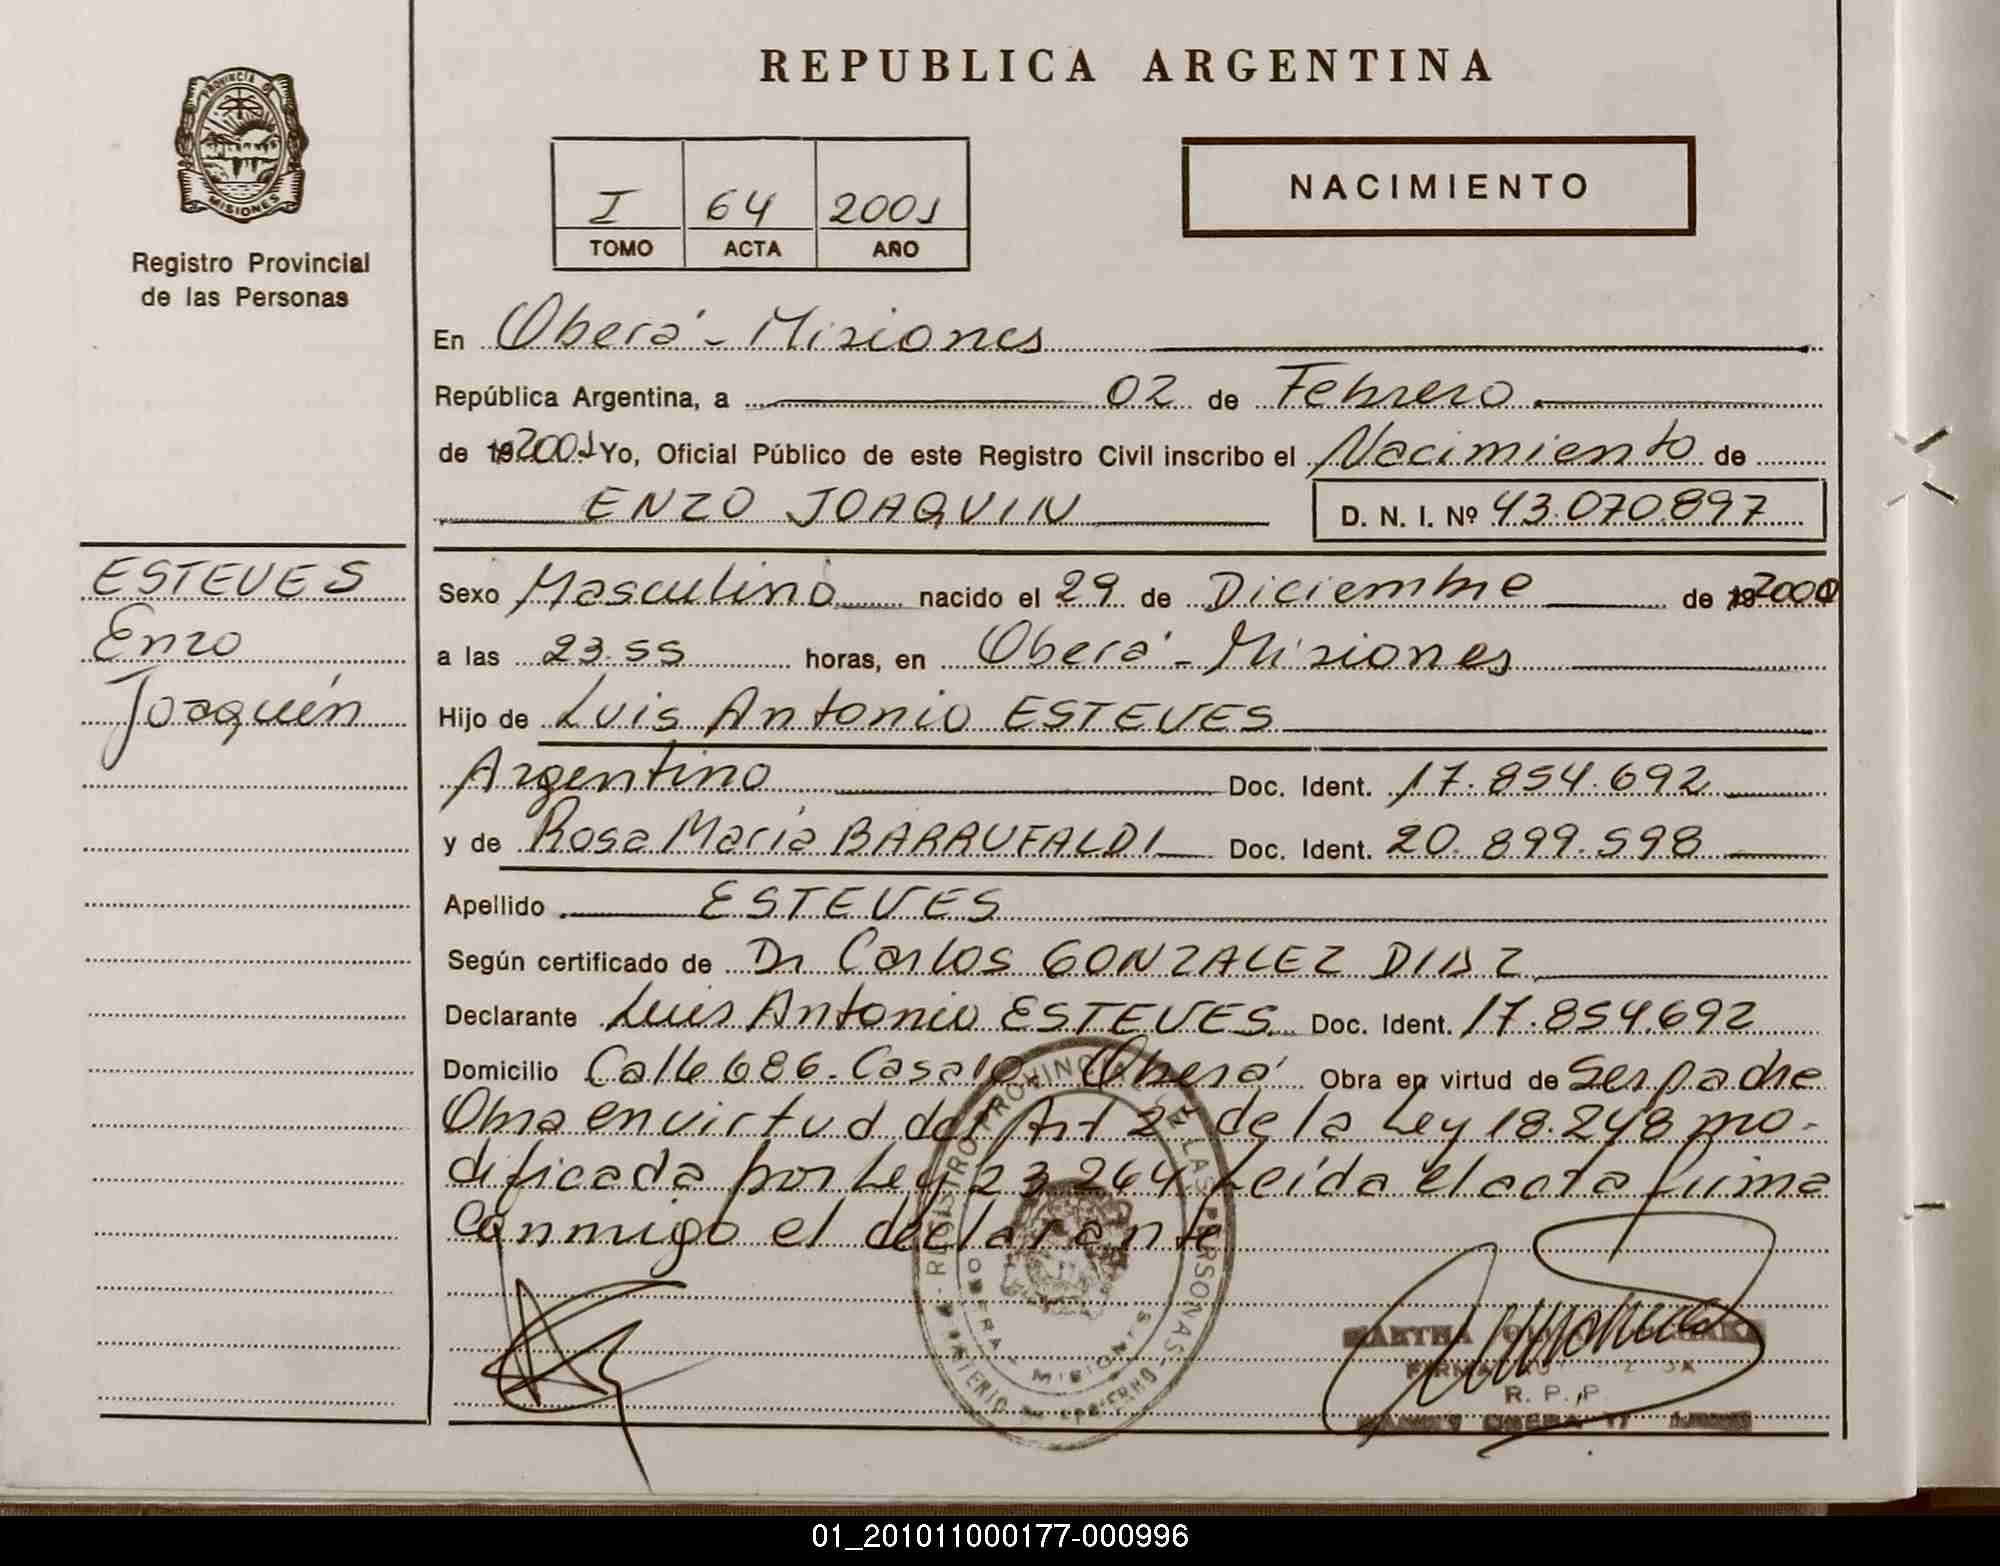 REPUBLICA ARGENTINA
PROVINCIA DE
MISIONES
Registro Provincial
de las Personas
I 64 2001
TOMO ACTA AÑO
NACIMIENTO
En Oberá - Misiones
República Argentina, a 02 de Febrero
de 192001 Yo, Oficial Público de este Registro Civil inscribo el Nacimiento de
ENZO JOAQUIN D. N. I. Nº 43.070.897
ESTEVES
Enzo
Joaquín
Sexo Masculino nacido el 29 de Diciembre de 192000
a las 23.55 horas, en Oberá - Misiones
Hijo de Luis Antonio ESTEVES
Argentino Doc. Ident. 17.854.692
y de Rosa María BARRUFALDI Doc. Ident. 20.899.598
Apellido ESTEVES
Según certificado de Dr Carlos GONZALEZ DIAZ
Declarante Luis Antonio ESTEVES Doc. Ident. 17.854.692
Domicilio Calle 686 - Casa 10 - Oberá Obra en virtud de Ser padre
Obra en virtud del Art 2º de la Ley 18.248 mo-
dificada por Ley 23.264 Leída el acta firma
conmigo el declarante
REGISTRO PROVINCIAL DE LAS PERSONAS
OBERA - MISIONES
MINISTERIO DE GOBIERNO
MARTHA
R. P. P.
01_201011000177-000996